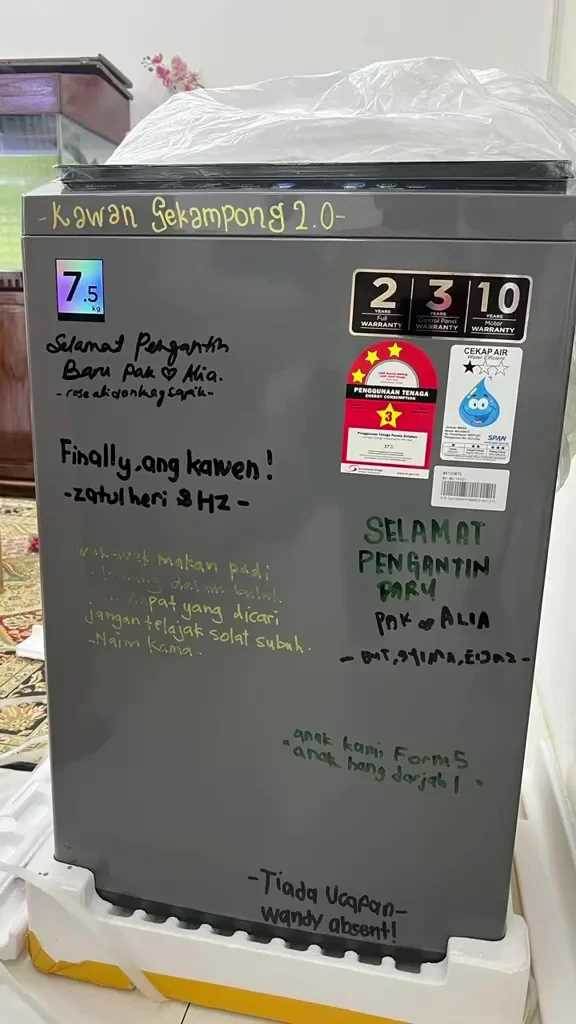 -Kawan Sekampong 2.0-
7.5
kg
2 YEARS Full WARRANTY
3 YEARS Control Panel WARRANTY
10 YEARS Motor WARRANTY
Selamat Pengantin
Baru Pak ♡ Alia.
PENGGUNAAN TENAGA
ENERGY CONSUMPTION
3
CEKAP AIR
Water Efficient
SPAN
Finally, ang kawen!
-zatulheri & HZ-
makan padi
pat yang dicari
jangan telajak solat subuh.
-Naim Kama-
SELAMAT
PENGANTIN
BARU
PAK ∞ ALIA
-anak kami Form 5
anak hang darjah 1-
-Tiada Ucapan-
wandy absent!